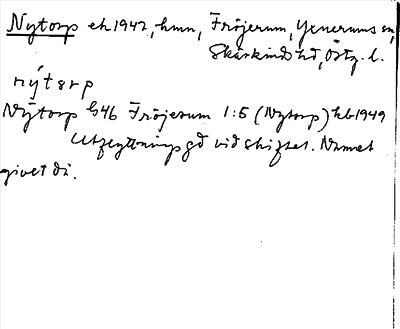 Nytorp ek 1947, hmn, Fröjerum, Yxnerums sn,
Skärkinds hd, Östg. l.
nýtɘrp
Nytorp G46 Fröjerum 1:5 (Nytorp) hb 1949
Utflyttningsgd vid skiftet. Namnet
givet då.